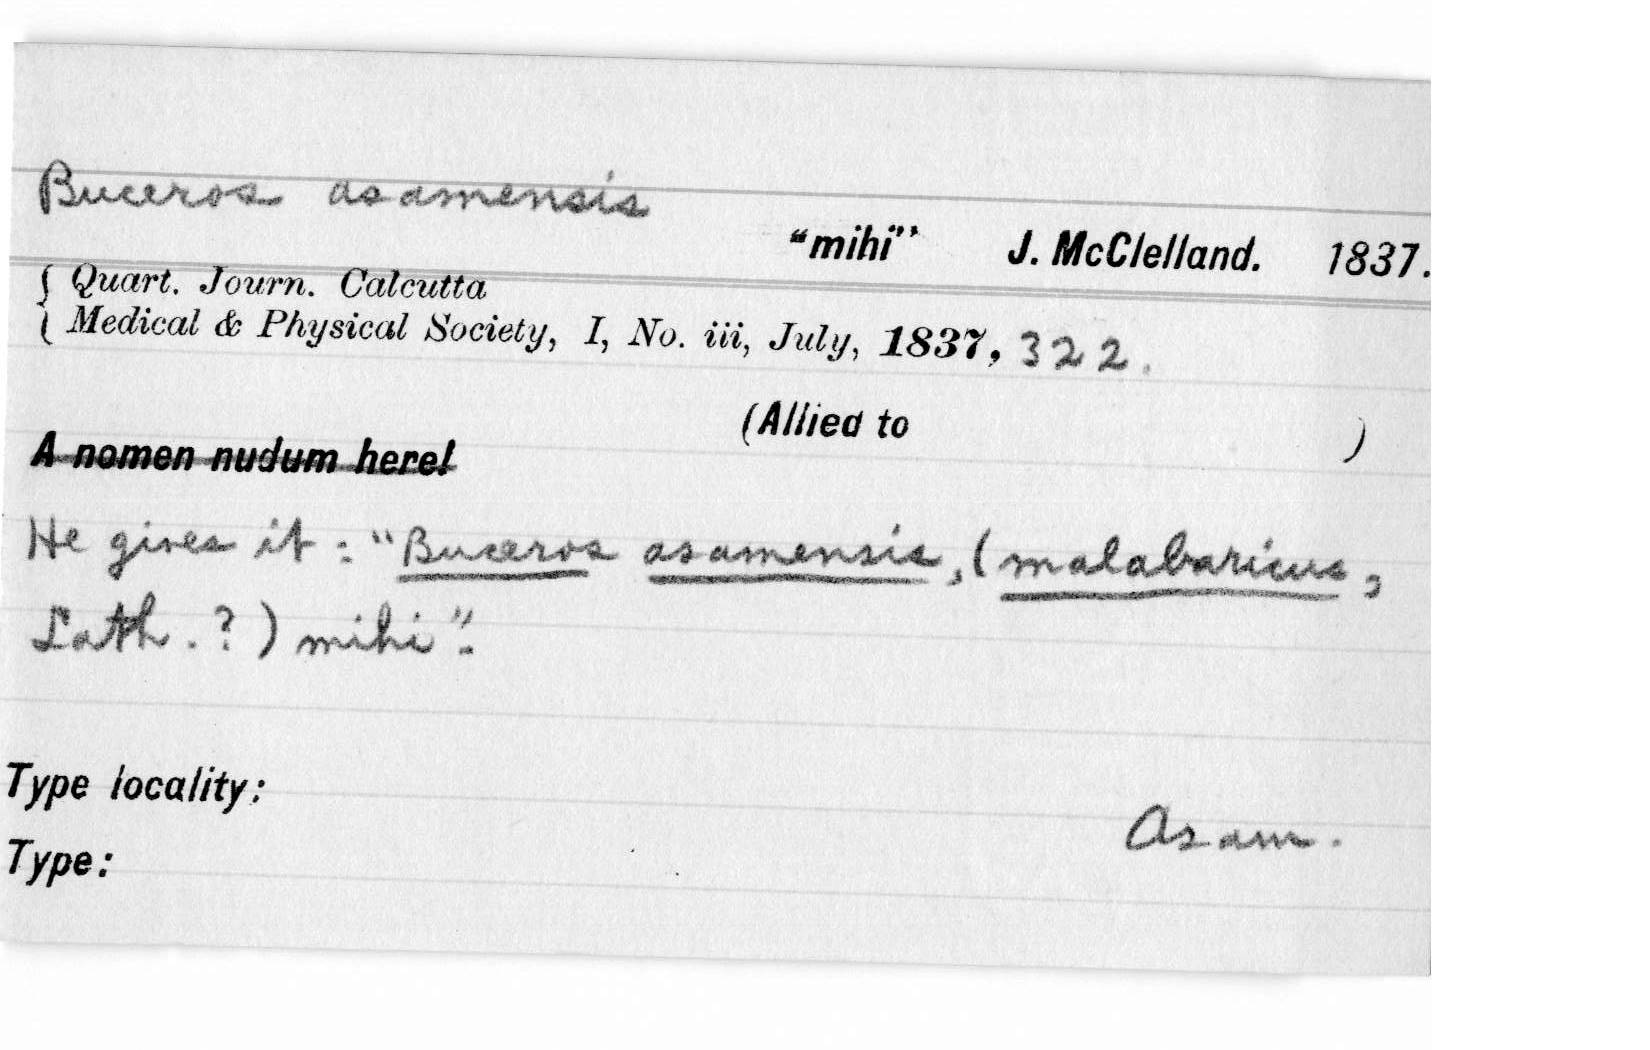 Buceros asamensis
“mihi” J. McClelland. 1837.
{ Quart. Journ. Calcutta
{ Medical & Physical Society, I, No. iii, July, 1837, 322.
(Allied to )
A nomen nudum here!
He gives it: "Buceros asamensis, (malabaricus,
Lath.?) mihi".
Type locality:
Asam.
Type: